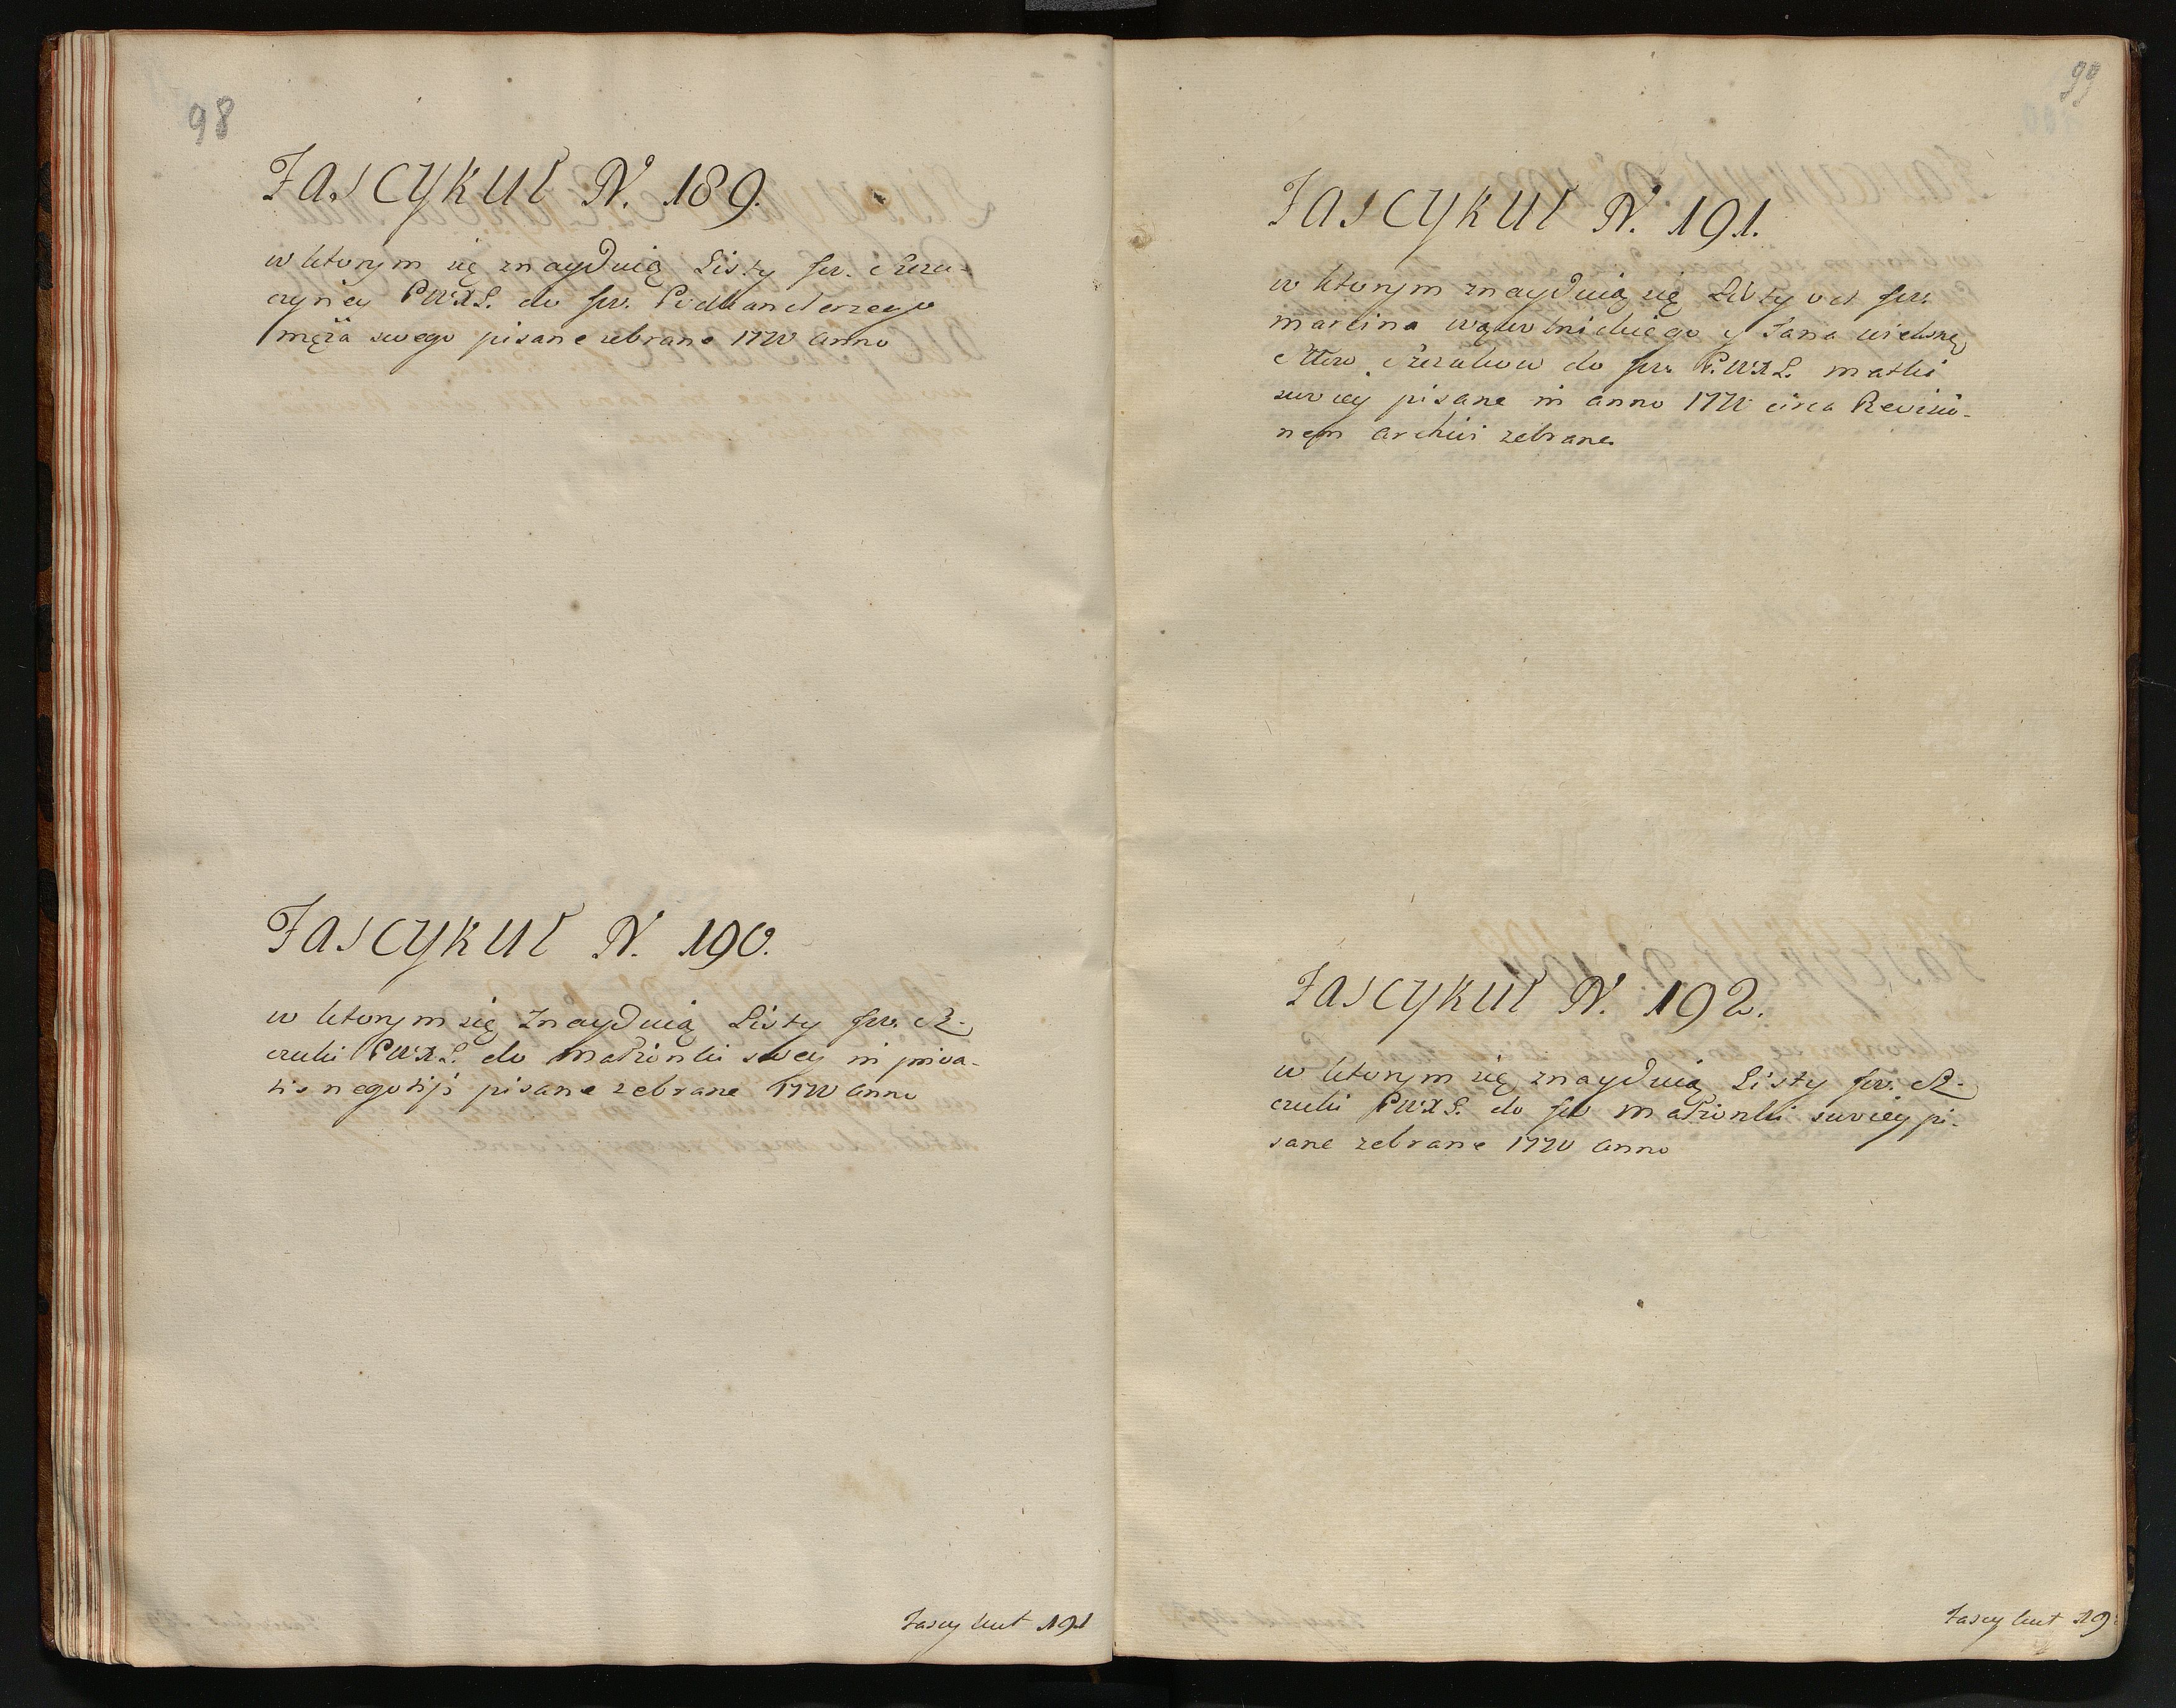 98
Fascykuł N. 189.
w ktorym się znayduią Listy Jw. Rzeu-
czyney P.W.X.L. do Jw. Podkanclerzego
męża swego pisane zebrane 1770 anno
Fascykuł N. 190.
w ktorym się znayduią Listy Jw.
P.W.X.L. do małżonki swey in priva-
tis negotijs pisane zebrane 1770 anno
Fascykuł 191
99
Fascykuł N. 191.
w ktorym znayduią się Listy od Jw.
marcina y Jana
do Jw. P.W.X.L. matki
swoiey pisane in anno 1770 circa Revisio-
nem archivi zebrane.
Fascykuł N. 192.
w ktorym się znayduią Listy Jw.
P.W.X.L. do Jw małżonki swoiey pi-
sane zebrane 1770 anno
Fascykuł 19